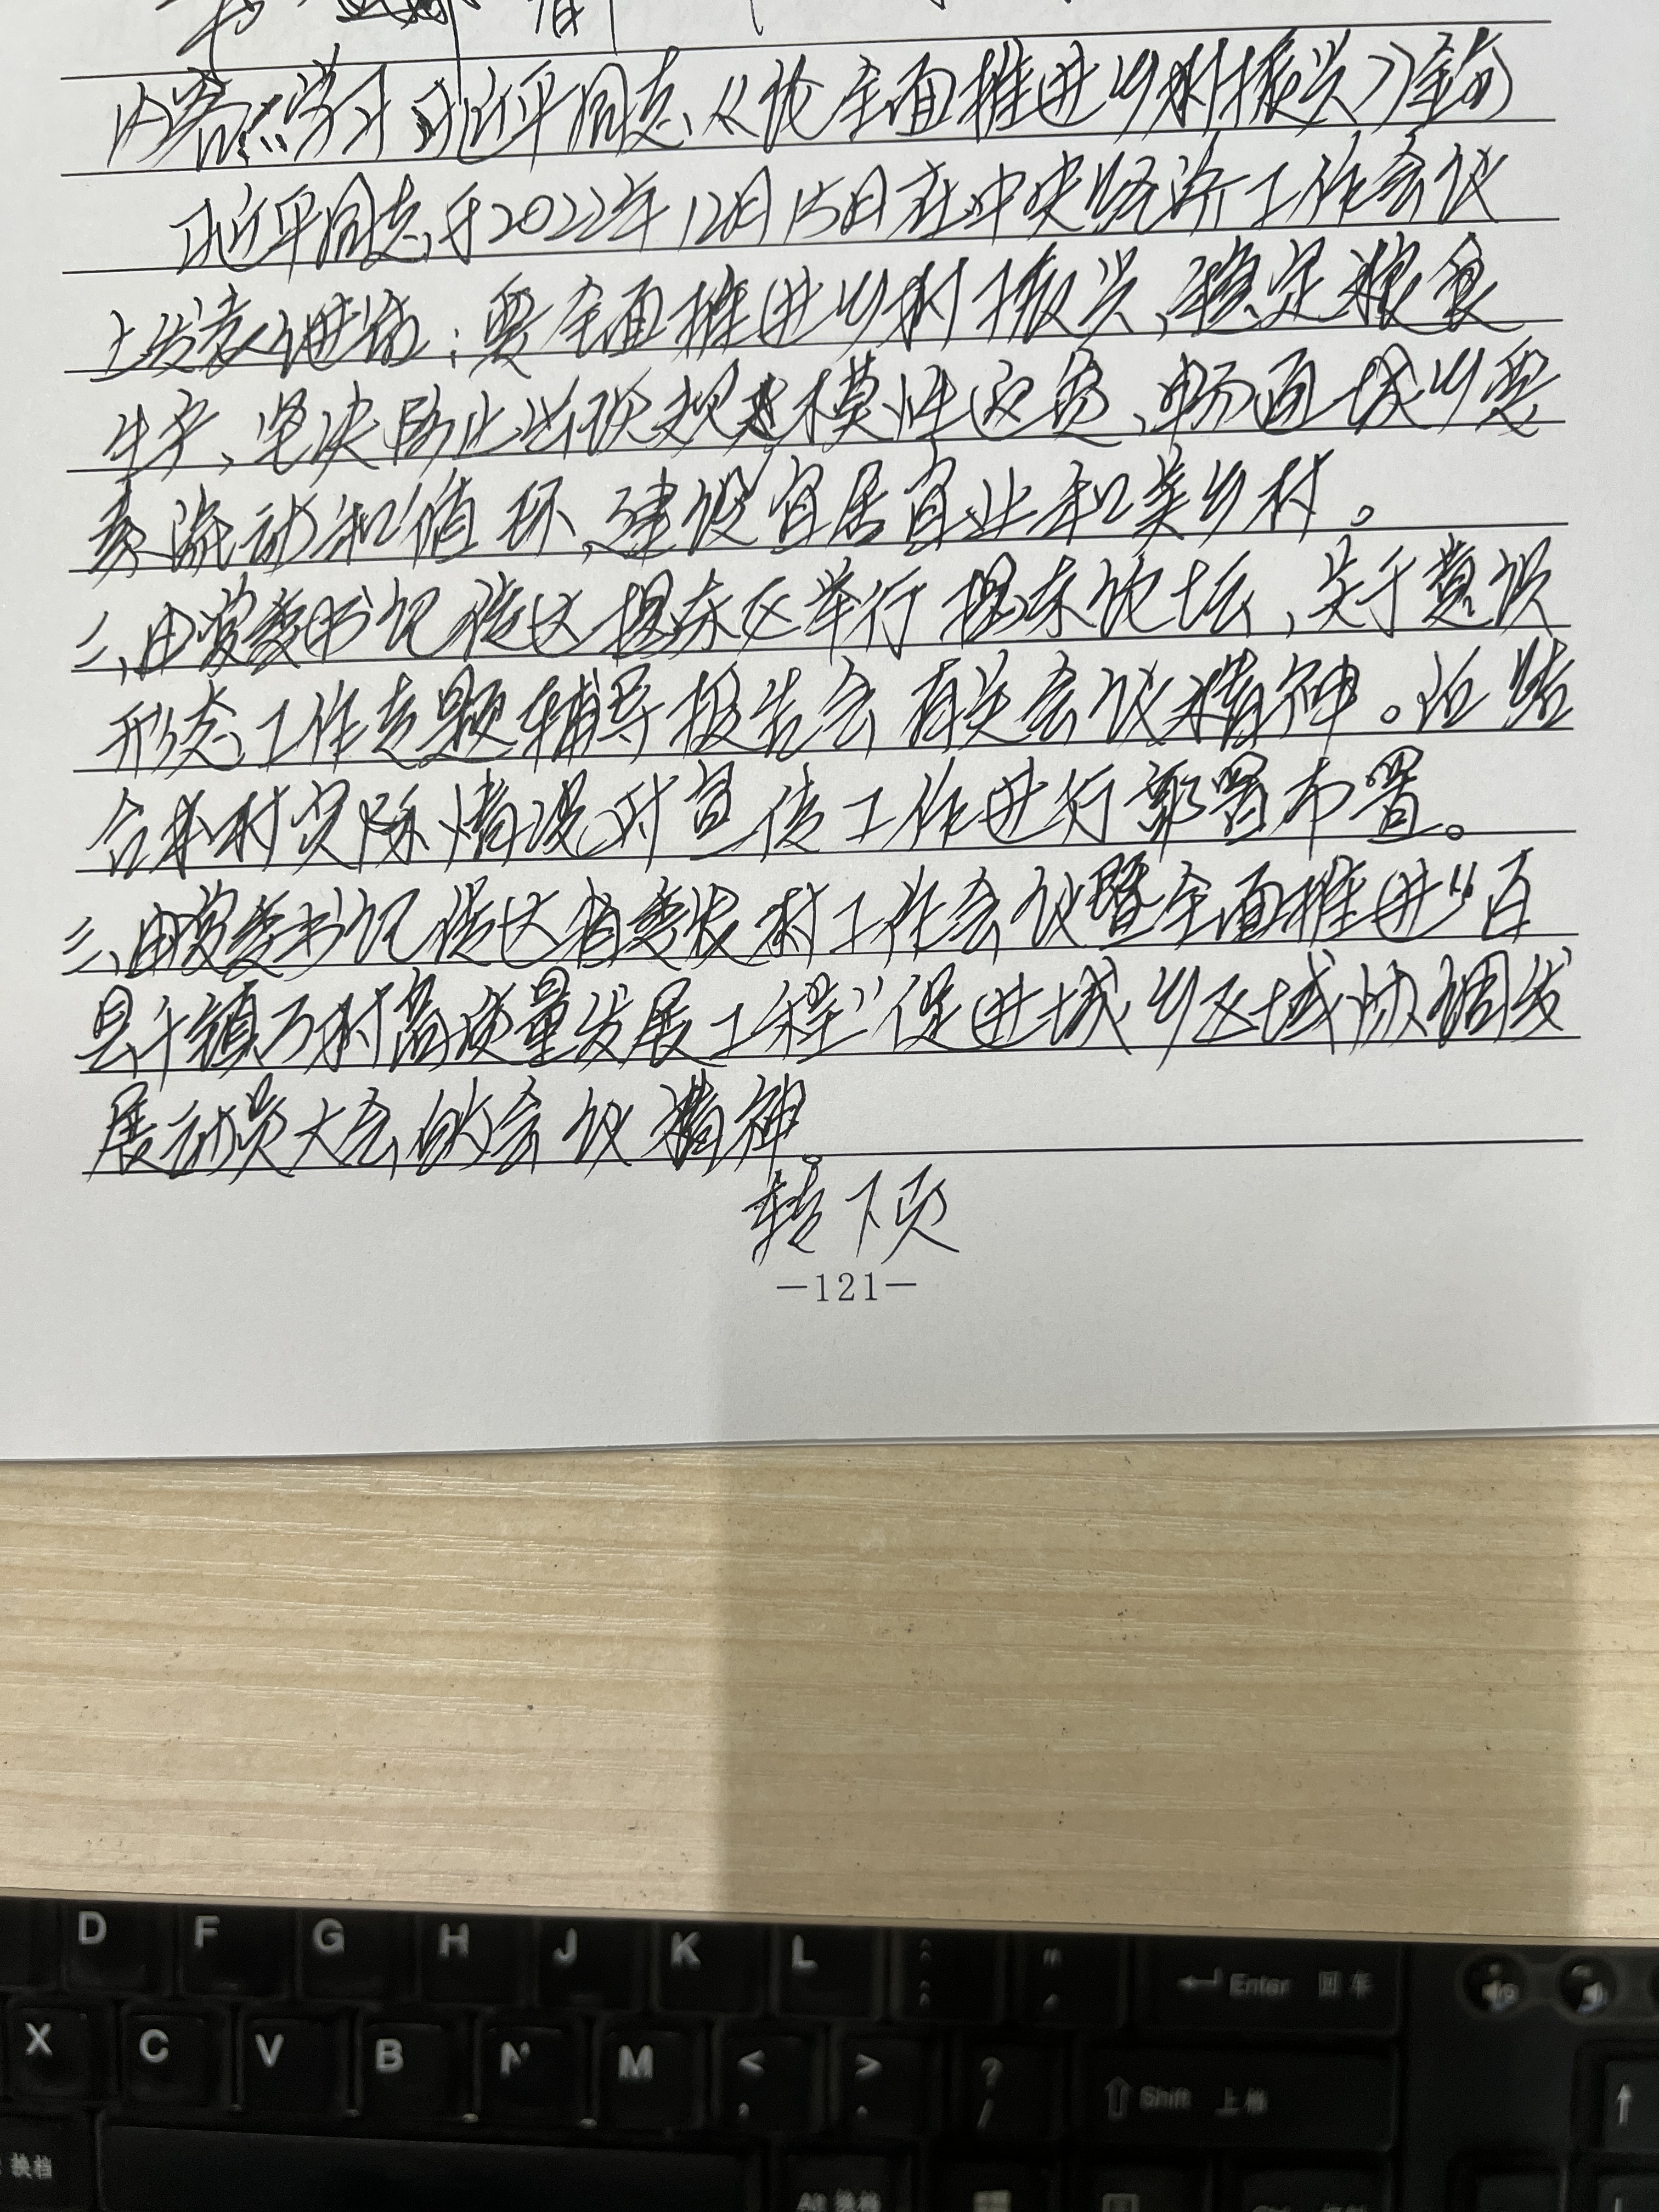 内容：学习习近平同志《论全面推进乡村振兴》节选
习近平同志于2022年12月15日在中央经济工作会议
上发表讲话：要全面推进乡村振兴、稳定粮食
生产、坚决防止出现规模性返贫、畅通城乡要
素流动和循环、建设宜居宜业和美乡村。
二、由党委书记传达揭东区举行揭东论坛、关于意识
形态工作专题辅导报告会有关会议精神。还结
合本村实际情况对宣传工作进行部署布置。
三、由党委书记传达省委农村工作会议暨全面推进“百
县千镇万村高质量发展工程”促进城乡区域协调发
展动员大会的会议精神。
转下页
—121—
D F G H J K L Enter 回车
X C V B N M < , > . ? / Shift 上档
换档 Alt 换档